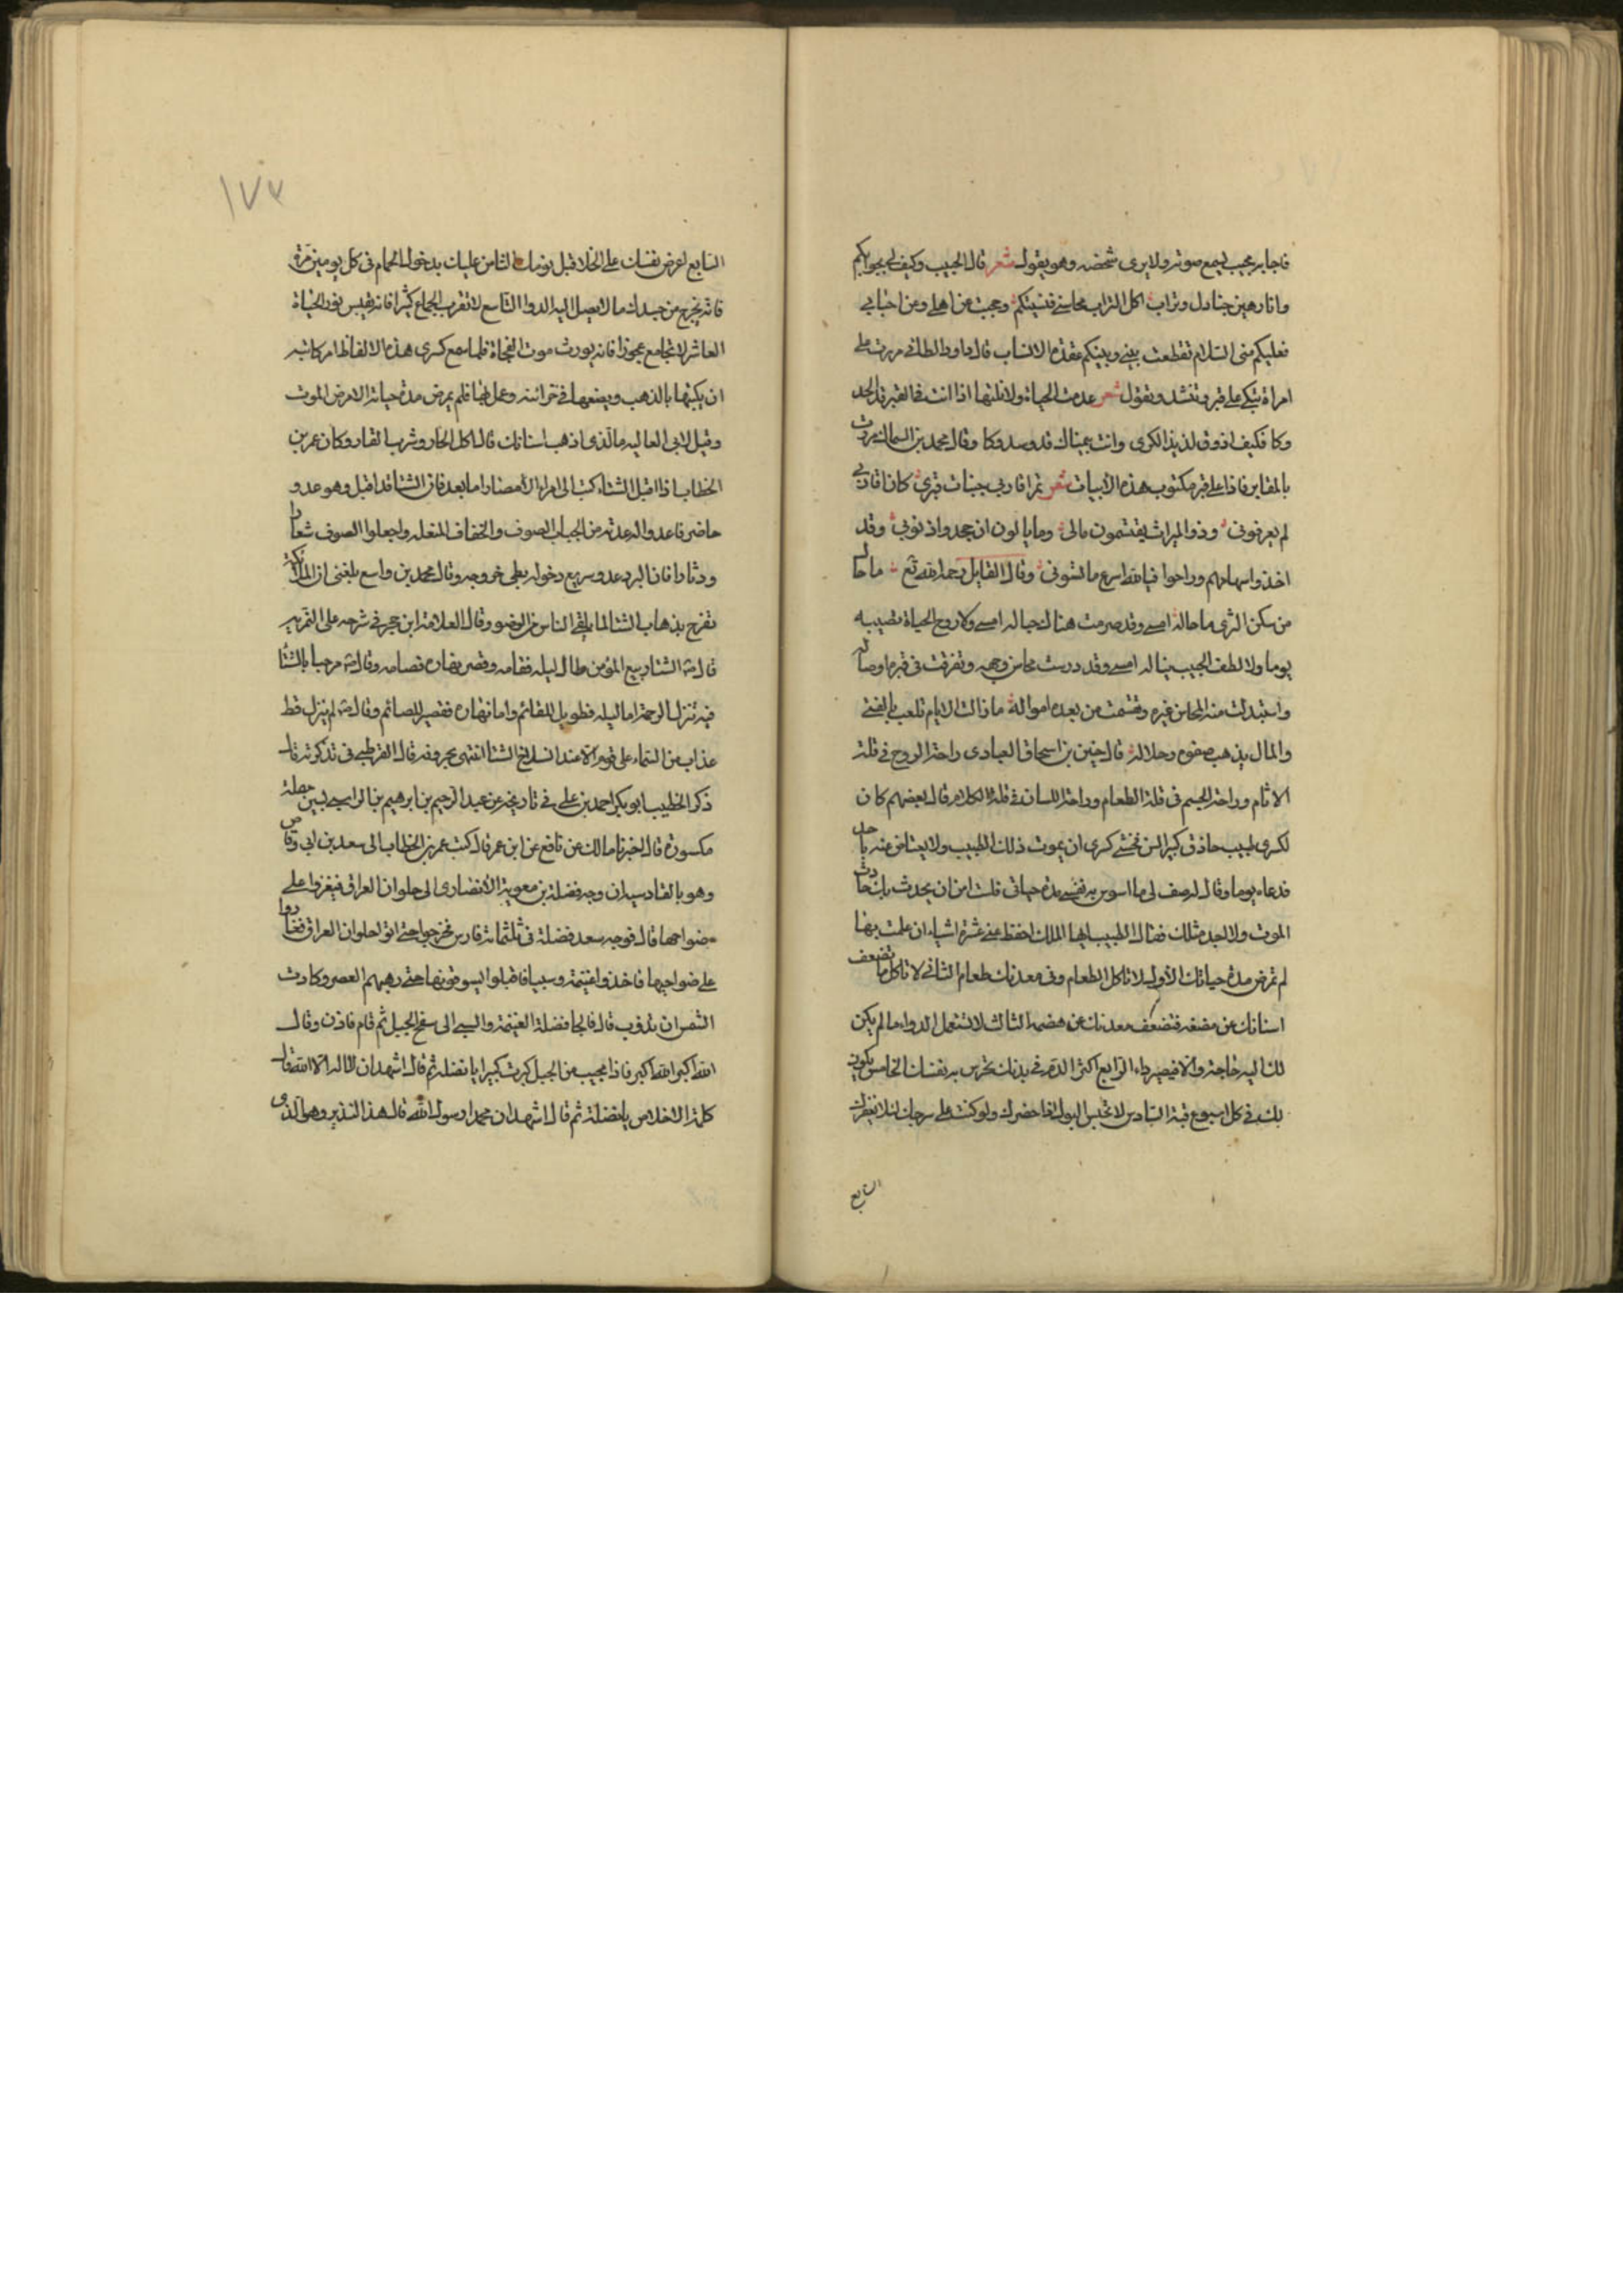 فاجابه مجيب يسمع صوته ولا يرى شخصه وهو يقول شعر قال الحبيب وكيف لي بجوابكم
وانا رهين جنادل وتراب اكل التراب محاسني فنسيتكم وحجبت عن اهلي وعن احبابي
فعليكم مني السلام تقطعت بيني وبينكم عقدة الانساب قال داود الطائي مررت على
امراة تبكي على قبر وتنشد وتقول شعر عدمت الحياة ولا نلتها اذا انت في القبر قد الحد
وكا فكيف اذوق لذيذ الكرى وانت بيمناك قد وسدوكا وقال محمد بن السماك مررت
بالمقابر فاذا على قبر مكتوب هذه الأبيات شعر تمر اقاربي جنبات قبري كان اقاربي
لم يعرفوني وذو الميراث يقتسمون مالي وما يالون ان جحدوا ذنوبي وقد
اخذوا سهامهم وراحوا فيالله اسرع ما نسوني وقال القايل رحمه الله تع ما حال
من سكن الثرى ما حاله امسى وقد صرمت هناك حباله امسى ولا روح الحياة تصيبه
يوما ولا لطف الحبيب يناله امسى وقد درست محاسن وجهه وتفرقت في قبره اوصاله
واستبدلت منه المحاسن غيره وتقسمت من بعده امواله ما زالت الايام تلعب بالفتى
والمال يذهب صفوه وحلاله قال حنين بن اسحاق العبادي راحة الروح في قلة
الاثام وراحة الجسم في قلة الطعام وراحة اللسان في قلة الكلام قال بعضهم كان
لكسرى طبيب حاذق كبير السن فخشي كسرى ان يموت ذلك الطبيب ولا يعتاض عنه باحد
فدعاه يوما وقال له صف لي ما اسوس به نفسي مدة حياتي فلست امن ان يحدث بك حادث
الموت ولا اجد مثلك فقال الطبيب ايها الملك احفظ عني عشرة اشياء ان عملت بها
لم تمرض مدة حياتك الأول لا تاكل الطعام وفي معدتك طعام الثاني لا تاكل ما تضعف
اسنانك عن مضغه فتضعف معدتك عن هضمه الثالث لا تستعمل الدواء ما لم يكن
لك اليه حاجة والا فيصير داء الرابع اكثر الدم في بدنك تحرس به نفسك الخامس يكون
لك في كل اسبوع قيئة السادس لا تحبس البول اذا حضرك ولو كنت على سرجك لئلا
السابع
١٧٣
السابع اعرض نفسك على الخلا قبل نومك الثامن عليك بدخول الحمام في كل يومين مرة
فانه يخرج من جسدك ما لا يصل اليه الدوا التاسع لا تقرب الجماع كثيرا فانه يقبس نور الحياة
العاشر لا تجامع عجوزا فانه يورث موت الفجاة فلما سمع كسرى هذه الالفاظ امر كاتبه
ان يكتبها بالذهب ويضعها في خزائنه وعمل بها فلم يمرض مدة حياته الا مرض الموت
وقيل لابي العاليه ما الذي اذهب اسنانك قال اكل الحار وشرب القار وكان عمر بن
الخطاب اذا اقبل الشتاء كتب الى امراء الأمصار اما بعد فان الشتا قد اقبل وهو عدو
حاضر فاعدوا له عدته من الجباب الصوف والخفاف المنعلة واجعلوا الصوف شعارا
ودثارا فان البرد عدو سريع دخوله بطى خروجه وقال محمد بن واسع بلغني ان الملائكة
تفرح بذهاب الشتا لما يلقى الناس من الوضو وقال العلامة ابن حجر في شرحه على
قال الشتا ربيع المؤمن طال ليله فقامه وقصر نهاره فصامه وقال مرحبا بالشتا
فيه تنزل الرحمة اما ليله فطويل للقائم واما نهاره فقصير للصائم وقال لم ينزل قط
عذاب من السماء على قوم الا عند انسلاخ الشتا انتهى بحروفه قال القرطبي في تذكرته قال
ذكر الخطيب ابو بكر احمد بن علي في تاريخه عن عبد الرحيم بن ابرهيم بن الراسبي بسين مهملة
مكسورة قال اخبرنا مالك عن نافع عن ابن عمر قال كتب عمر بن الخطاب الى سعد بن ابي وقاص
وهو بالقادسية ان وجه فضلة بن معوية الأنصاري الى حلوان العراق فيغزوا على
ضواحيها قال فوجه سعد فضلة في ثلثمائة فارس فخرجوا حتى اتوا حلوان العراق فغاروا
على ضواحيها فاخذوا غنيمة وسبيا فاقبلوا يسوقونها حتى رهبهم العصر وكادت
الشمس ان تؤوب قال فالجا فضلة الغنيمة والسبي الى سفح الجبل ثم قام فاذن وقال
الله اكبر الله اكبر فاذا مجيب من الجبل كبرت كبيرا يا نضلة ثم قال اشهد ان لا اله الا الله قال
كلمة الاخلاص يا نضلة ثم قال اشهد ان محمدا رسول الله قال هذا النذير وهو الذي